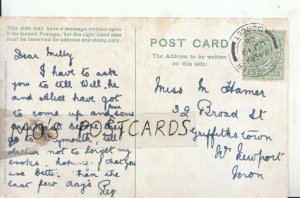 This side may have a message written upon
it for Inland Postage, but the right hand side
must be reserved for address and stamp only.
POST CARD
The Address to be written
on this side.
Dear Milly
I have to ask
you to tell Will, he
and Alice have got to
come up and
go to
not to forget my
books. hoping that you
are better than the
last few days
Reg
Miss M Hamer
32 Broad St
Griffithstown
Nr Newport
Mon
MO'S POSTCARDS